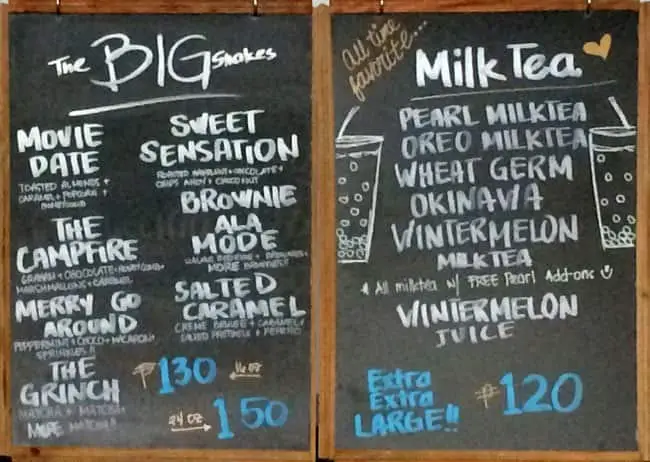 The BIG Shakes
MOVIE
DATE
TOASTED ALMONDS +
CARAMEL + POPCORN +
HONEYCOMB
THE
CAMPFIRE
GRAHAM + CHOCOLATE + HONEYCOMB +
MARSHMALLOWS + CARAMEL
MERRY GO
AROUND
PEPPERMINT + CHOCO + MACARON +
SPRINKLES !!
THE
GRINCH
MATCHA + MATCHA +
MORE MATCHA!!
SWEET
SENSATION
ROASTED HAZELNUT + CHOCOLATE +
CHIPS AHOY +
BROWNIE
ALA
MODE
+ BROWNIES +
MORE BROWNIES!!
SALTED
CARAMEL
CREME BRULEE + CARAMEL +
SALTED PRETZELS +
₱ 130 16 oz
24 oz 150
All time
favorite...
Milk Tea
PEARL MILKTEA
OREO MILKTEA
WHEAT GERM
OKINAWA
WINTERMELON
MILKTEA
* All milktea w/ FREE Pearl Add-ons
WINTERMELON
JUICE
Extra
Extra
LARGE!!
₱ 120